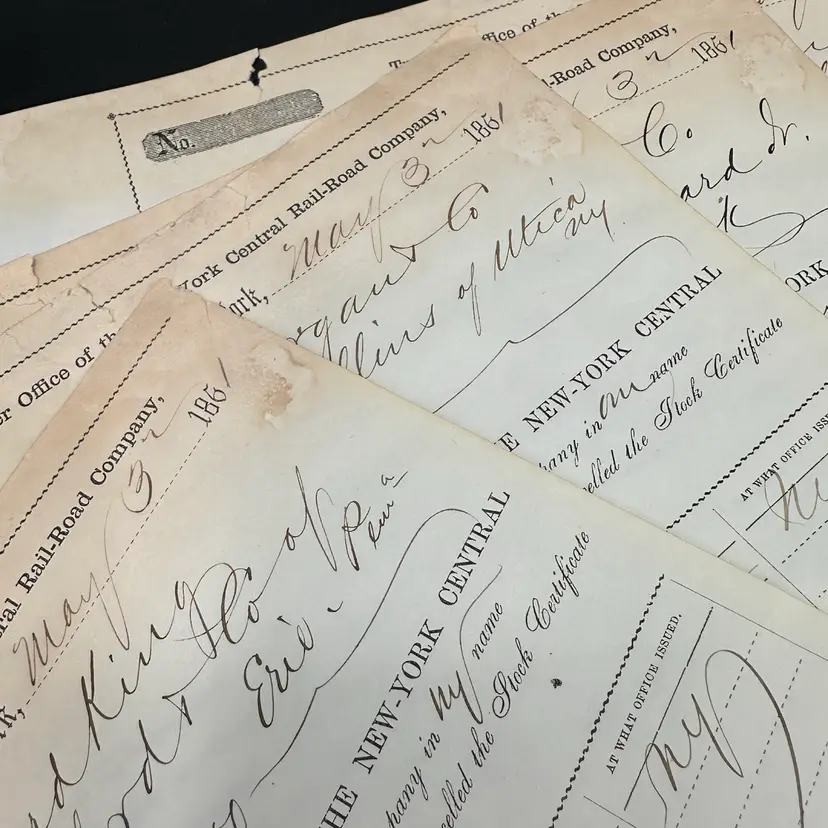 No.
ffice of th
-Road Company,
3 1861
Co.
ard Jr.
ORK
York Central Rail-Road Company,
ork, May 3 1861
rgan & Co
llins of Utica
NY.
E NEW-YORK CENTRAL
pany in name
celled the Stock Certificate
AT WHAT OFFICE ISSU
or Office of th
ral Rail-Road Company,
rk, May 3 1861
d King of
ord & Co
Erie. Penn a
THE NEW-YORK CENTRAL
pany in my name
celled the Stock Certificate
AT WHAT OFFICE ISSUED.
NY